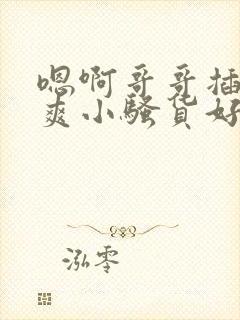 嗯啊哥哥插
爽小骚货好
泓零